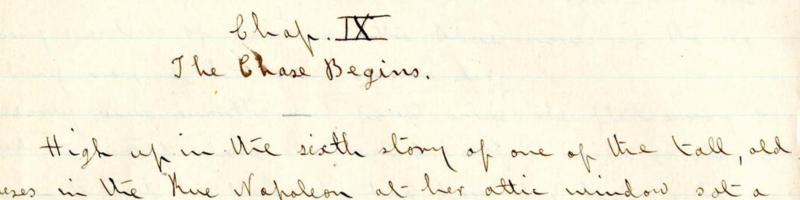 Chap. IX
The Chase Begins.
High up in the sixth story of one of the tall, old
in the Rue Napoleon at her attic window sat a